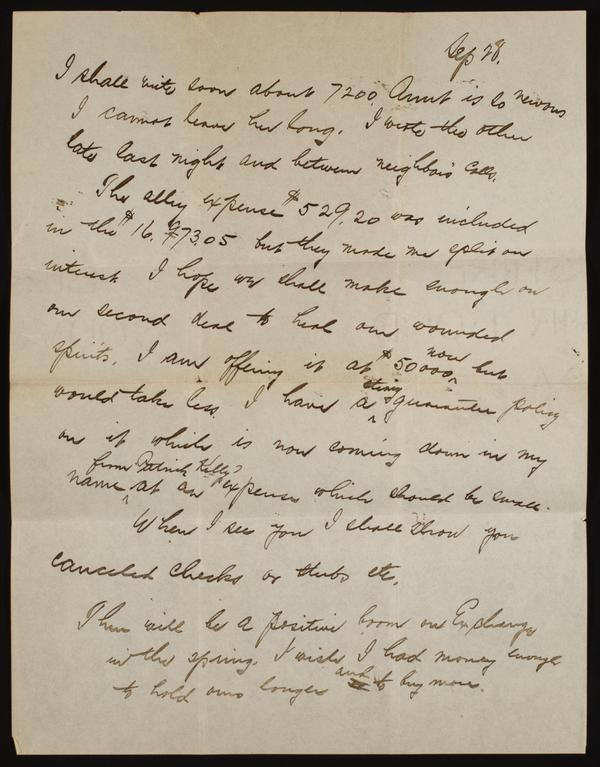 Sep 28.
I shall write soon about 7200. Aunt is so nervous
I cannot leave her long. I wrote the other
late last night and between neighbors calls.
The alley expense $529.20 was included
in the $16. 973.05 but they made me split on
interest. I hope we shall make enough on
our second deal to heal our wounded
spirits. I am offering it at $50000 now but
would take less. I have a guarantee policy
on it which is now coming down in my
name from Patrick Kelly at an expense which should be small.
When I see you I shall show you
canceled checks or stubs etc.
There will be a positive boom on Exchange
in the spring. I wish I had money enough
to hold ours longer and to buy more.